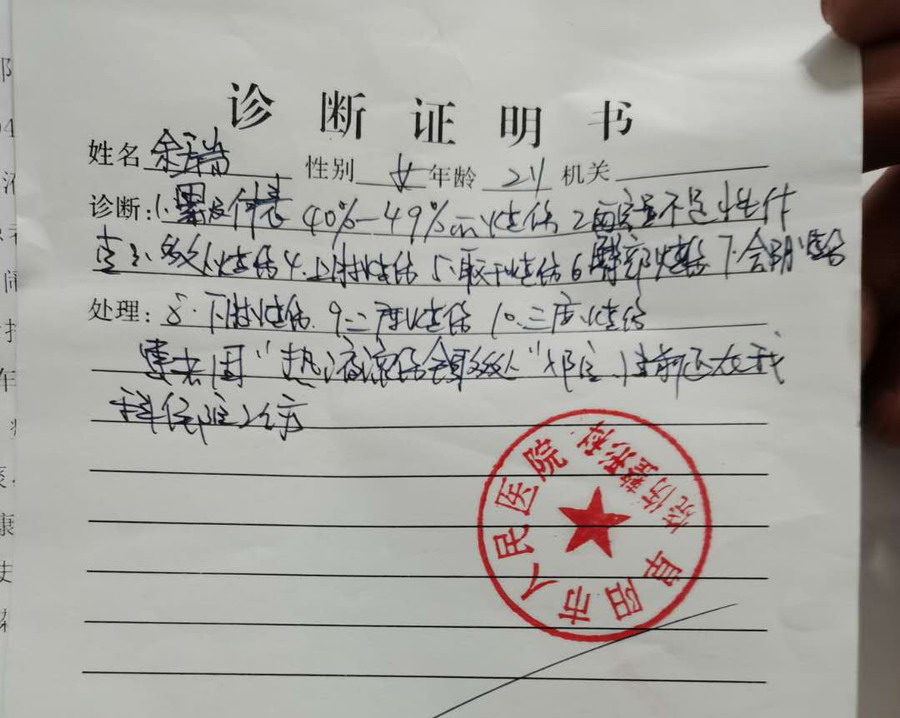 诊断证明书
姓名 余瑞 性别 女 年龄 2岁 机关
诊断:1.累及体表40%-49%的烧伤 2.血容量不足性休
克 3.多处烧伤 4.上肢烧伤 5.躯干烧伤 6.臀部烧伤 7.会阴烧伤
处理: 8.下肢烧伤 9.二度烧伤 10.三度烧伤
患者因"热液烫伤全身多处"入院,目前还在我
科住院治疗
阜阳市人民医院
烧伤整形科